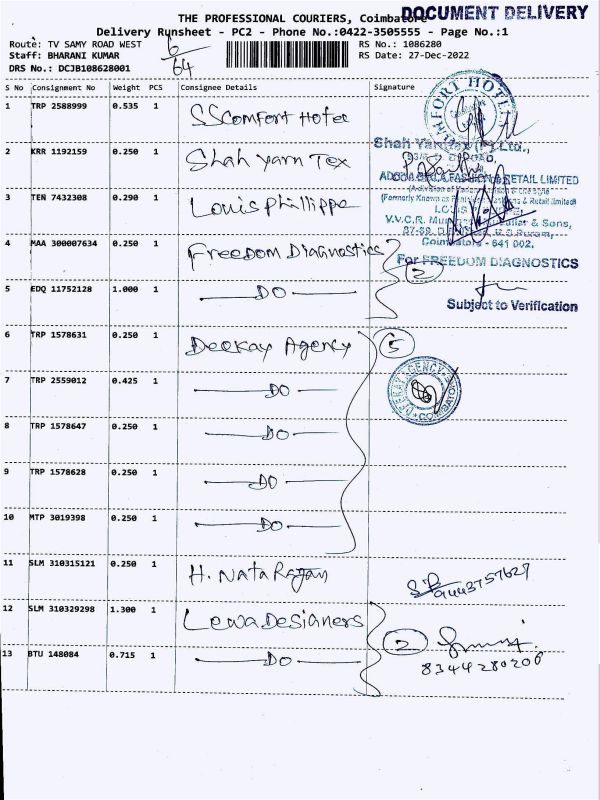 DOCUMENT DELIVERY
THE PROFESSIONAL COURIERS, Coimbatore
Delivery Runsheet - PC2 - Phone No.:0422-3505555 - Page No.:1
Route: TV SAMY ROAD WEST 6/64 RS No.: 1086280
Staff: BHARANI KUMAR RS Date: 27-Dec-2022
DRS No.: DCJB108628001
S No Consignment No Weight PCS Consignee Details Signature
1 TRP 2588999 0.535 1 SS Comfort Hotel
2 KRR 1192159 0.250 1 Shah Yarn Tex
3 TEN 7432308 0.290 1 Louis Phillippe
4 MAA 300007634 0.250 1 Freedom Diagnostics
5 EDQ 11752128 1.000 1 DO 2
6 TRP 1578631 0.250 1 Deekay Agency 5
7 TRP 2559012 0.425 1 DO
8 TRP 1578647 0.250 1 DO
9 TRP 1578628 0.250 1 DO
10 MTP 3019398 0.250 1 DO
11 SLM 310315121 0.250 1 H. Natarajan 9443757627
12 SLM 310329298 1.300 1 Lewa Designers 2
13 BTU 148084 0.715 1 DO 8344280200
Shah Yarn Tex (P) Ltd.,
FASHION & RETAIL LIMITED
(Formerly Known as
& Retail limited)
V.V.C.R. & Sons,
Coimbatore - 641 002.
For FREEDOM DIAGNOSTICS
Subject to Verification
DEEKAY AGENCY